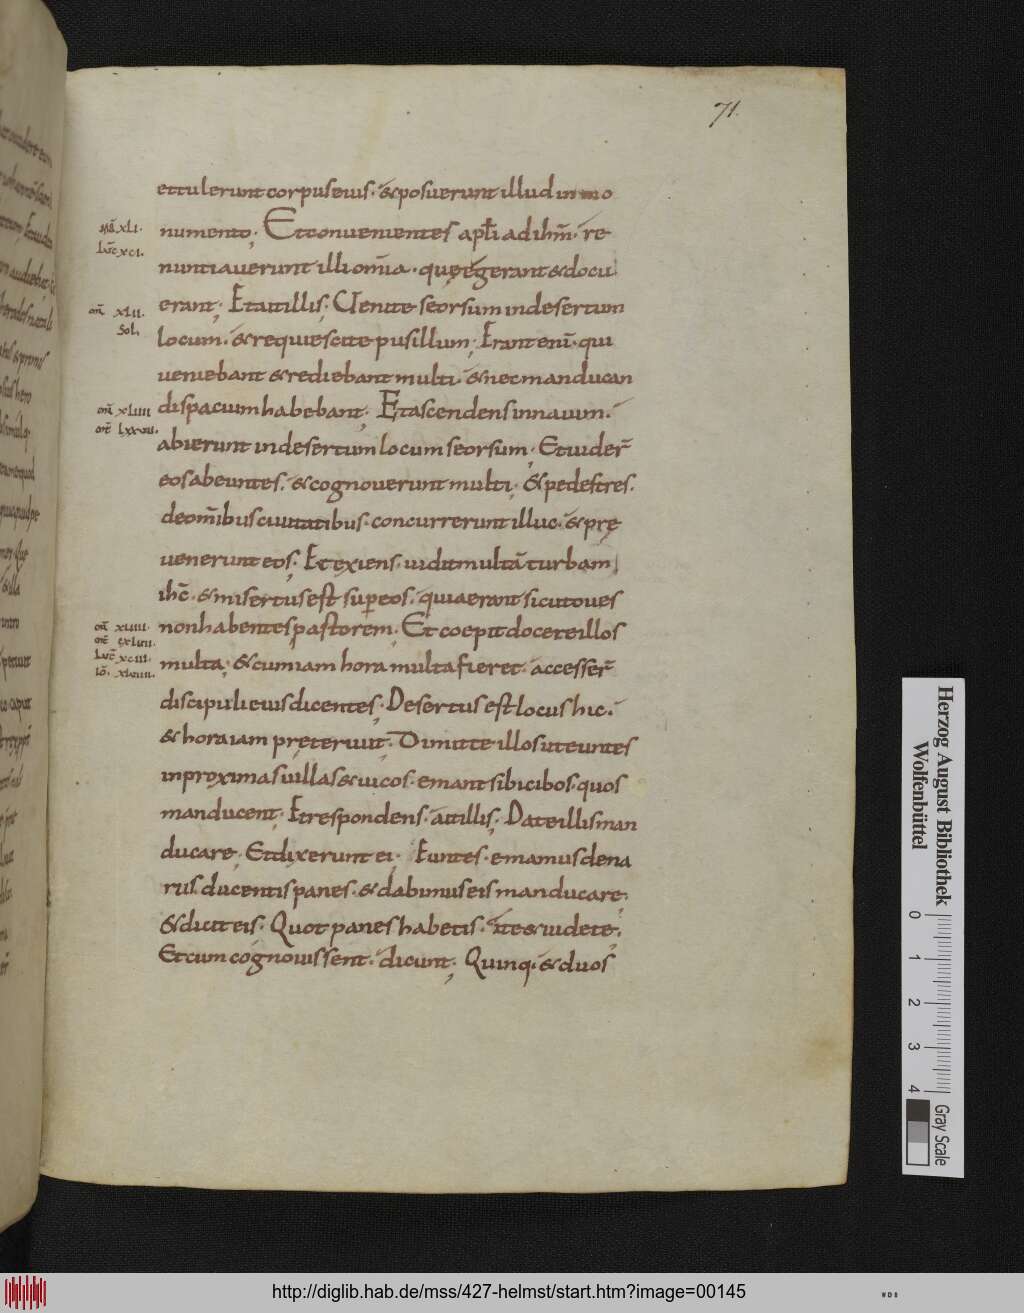 71.
ettulerunt corpus eius. & posuerunt illud in mo
numento; Et conuenientes apłi ad ihm̄. re
nuntiauerunt illi om̄ia. quę egerant & docu
erant; Et ait illis; Uenite seorsum in desertum
locum. & requiescite pusillum; Erant eni̅. qui
ueniebant & rediebant multi. & nec manducan
di spacium habebant; Et ascendens in nauim.
abierunt in desertum locum seorsum; Et uider̄
eos abeuntes. & cognouerunt multi; & pedestres.
de om̄ibus ciuitatibus. concurrerunt illuc. & prę
uenerunt eos; Et exiens. uidit multā turbam
ih̄c. & misertus est sup̲ eos. quia erant sicut oues
non habentes pastorem; Et coepit docere illos
multa; & cum iam hora multa fieret. accesser̄
discipuli eius dicentes; Desertus est locus hic.
& hora iam pręteriuit; Dimitte illos ut euntes
in proximas uillas & uicos. emant sibi cibos. quos
manducent; Et respondens. ait illis; Date illis man
ducare; Et dixerunt ei; Euntes. emamus dena
rus ducentis panes. & dabimus eis manducare;
& dicit eis. Quot panes habetis. ite & uidete;
Et cum cognouissent. dicunt; Quinq. & duos
XLI.
Luc̄ XCI.
XLII.
Sol.
XLIII
XLIIII.
Luc̄ XCIII.
Herzog August Bibliothek
Wolfenbüttel
0 1 2 3 4
Gray Scale
http://diglib.hab.de/mss/427-helmst/start.htm?image=00145